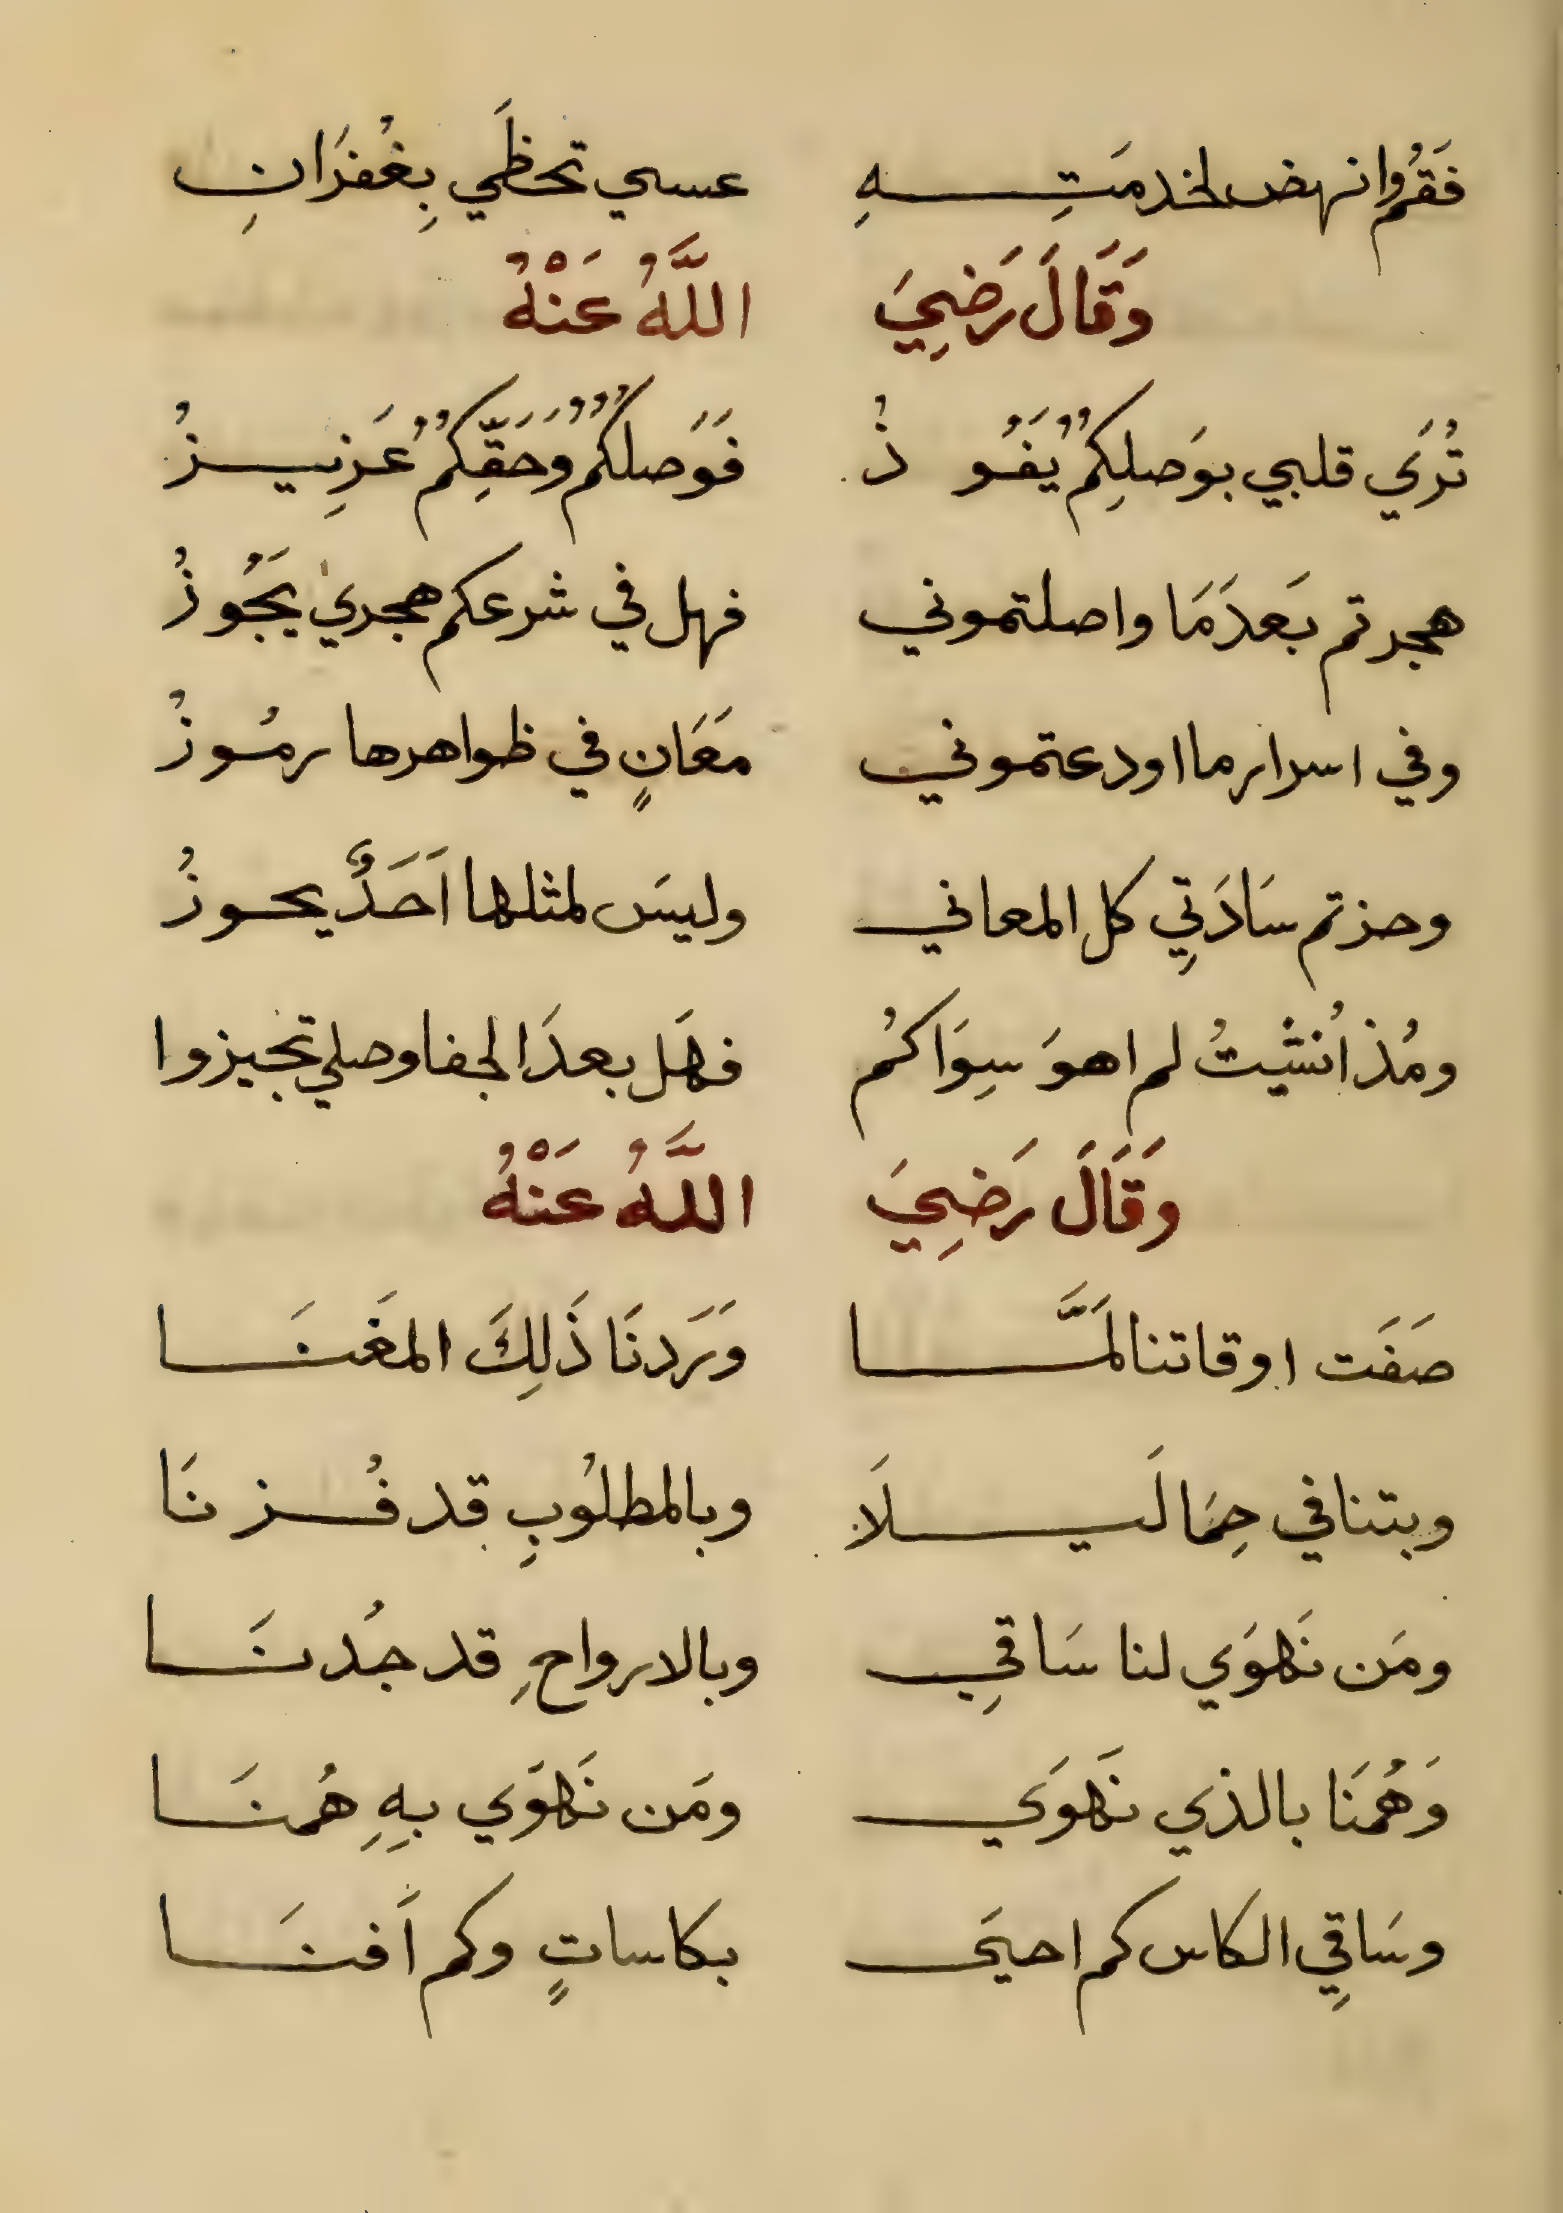 فَقُم وانهض لخدمَتِهِ عسي تحظَي بِغُفرَانِ
وَقَالَ رَضِيَ اللَّهُ عَنْهُ
تُرَي قلبي بوَصلِكُمُ يَفُوذُ فَوَصلكُمُ وَحَقِّكُمُ عَزِيزُ
هجرتم بَعدَمَا واصلتموني فهل في شرعكم هجري يَجُوزُ
وفي اسرار ما اودعتموني مَعَانٍ في ظواهرها رمُوزُ
وحزتم سَادَتِي كل المعاني وليسَ لمثلها اَحَدٌ يحوزُ
ومُذ اُنشيتُ لم اهوَ سِوَاكُم فهَل بعدَ الجفا وصلي تجيزوا
وَقَالَ رَضِيَ اللَّهُ عَنْهُ
صَفَت اوقاتنا لَمَّا وَرَدنَا ذَلِكَ المغَنَا
وبتنا في حِمَا لَيلَا وبالمطلُوبِ قد فُزنَا
ومَن نَهوَي لنا سَاقِي وبالارواحِ قد جُدنَا
وَهُمنَا بالذي نَهوَي ومَن نَهوَي بِهِ هُمنَا
وسَاقِي الكاس كم احيَى بكاساتٍ وكم اَفنَا